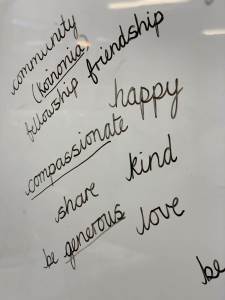 community
(koinonia)
fellowship friendship
happy
compassionate
kind
share
be generous
love
be